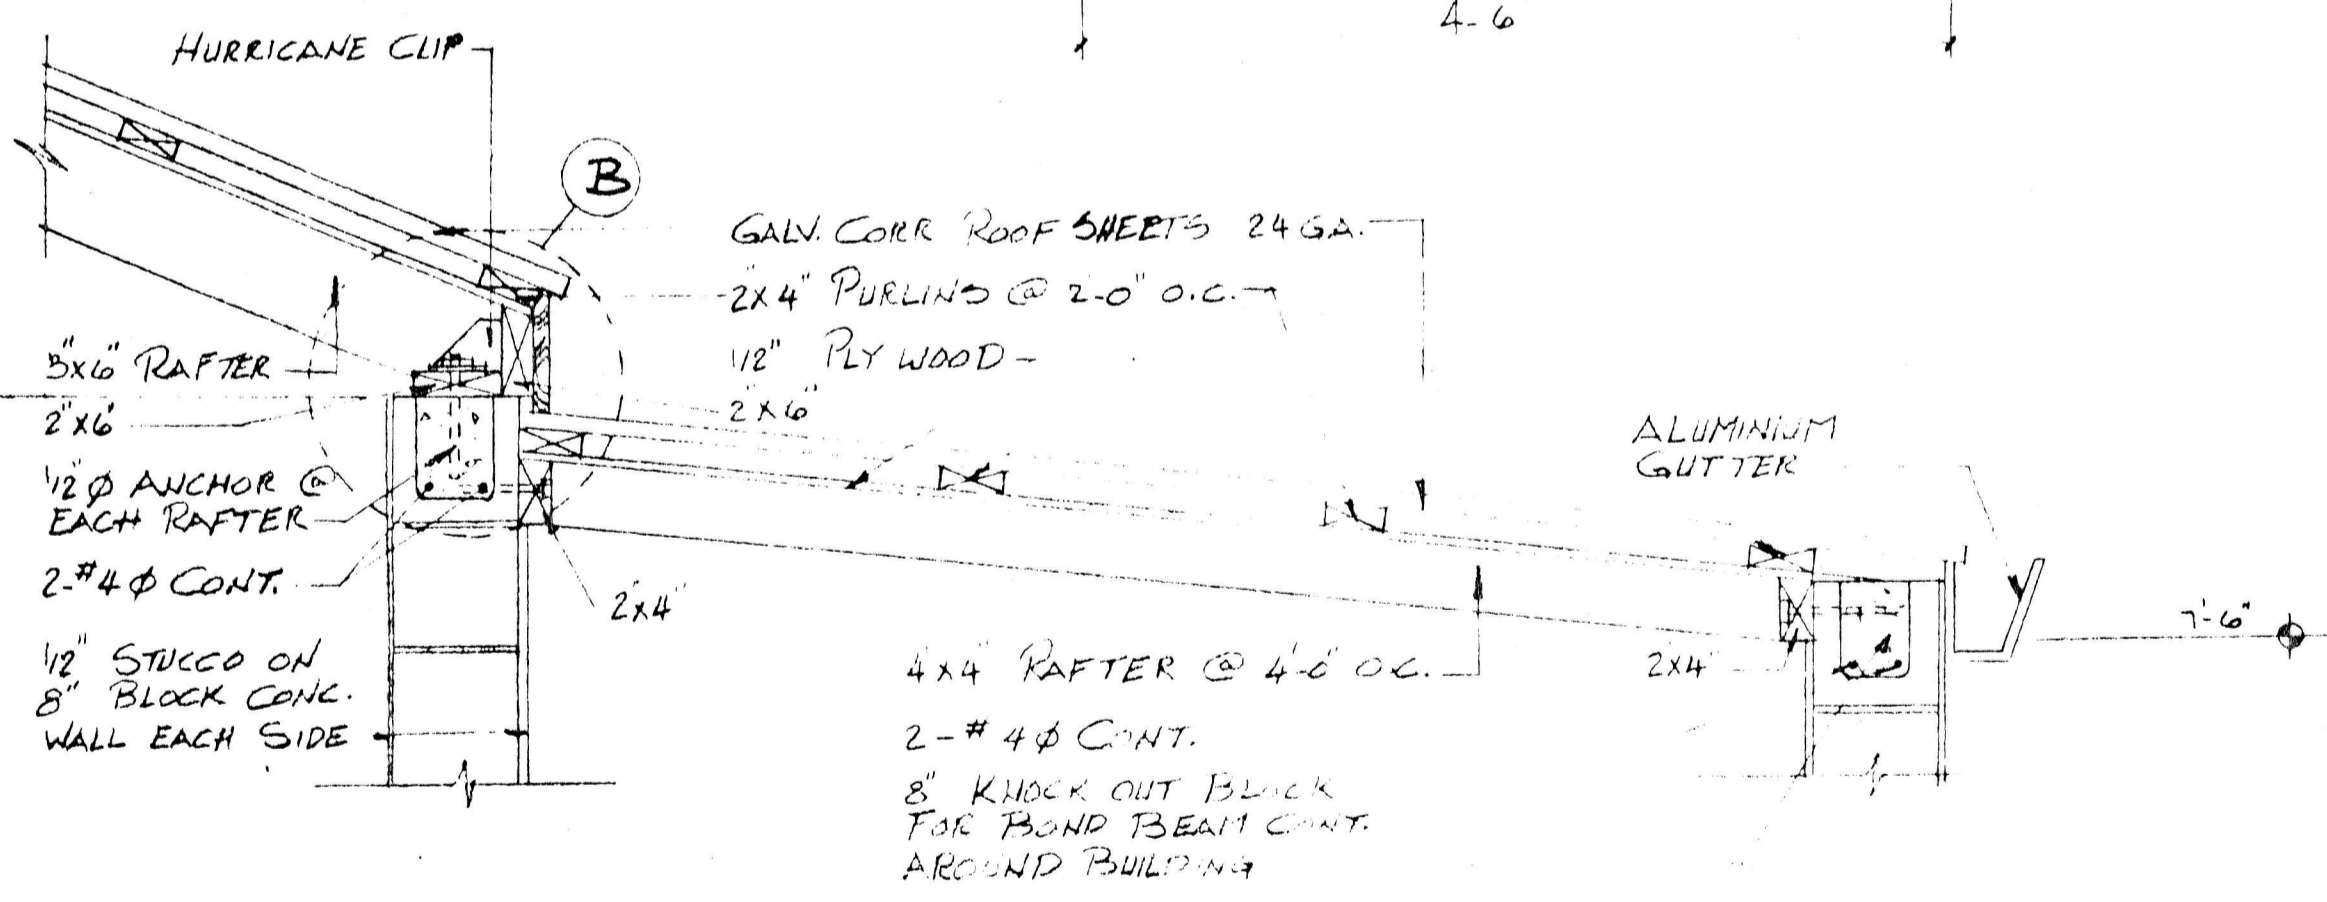 4-6
HURRICANE CLIP
B
GALV. CORR ROOF SHEETS 24 GA.
2"X4" PURLINS @ 2'-0" O.C.
1/2" PLYWOOD
2"X6"
3"X6" RAFTER
2"X6"
1/2" Ø ANCHOR @
EACH RAFTER
2-#4 Ø CONT.
1/2" STUCCO ON
8" BLOCK CONC.
WALL EACH SIDE
2"X4"
ALUMINIUM
GUTTER
7'-6"
4"X4" RAFTER @ 4'-0" O.C.
2X4"
2-#4 Ø CONT.
8" KNOCK OUT BLOCK
FOR BOND BEAM CONT.
AROUND BUILDING